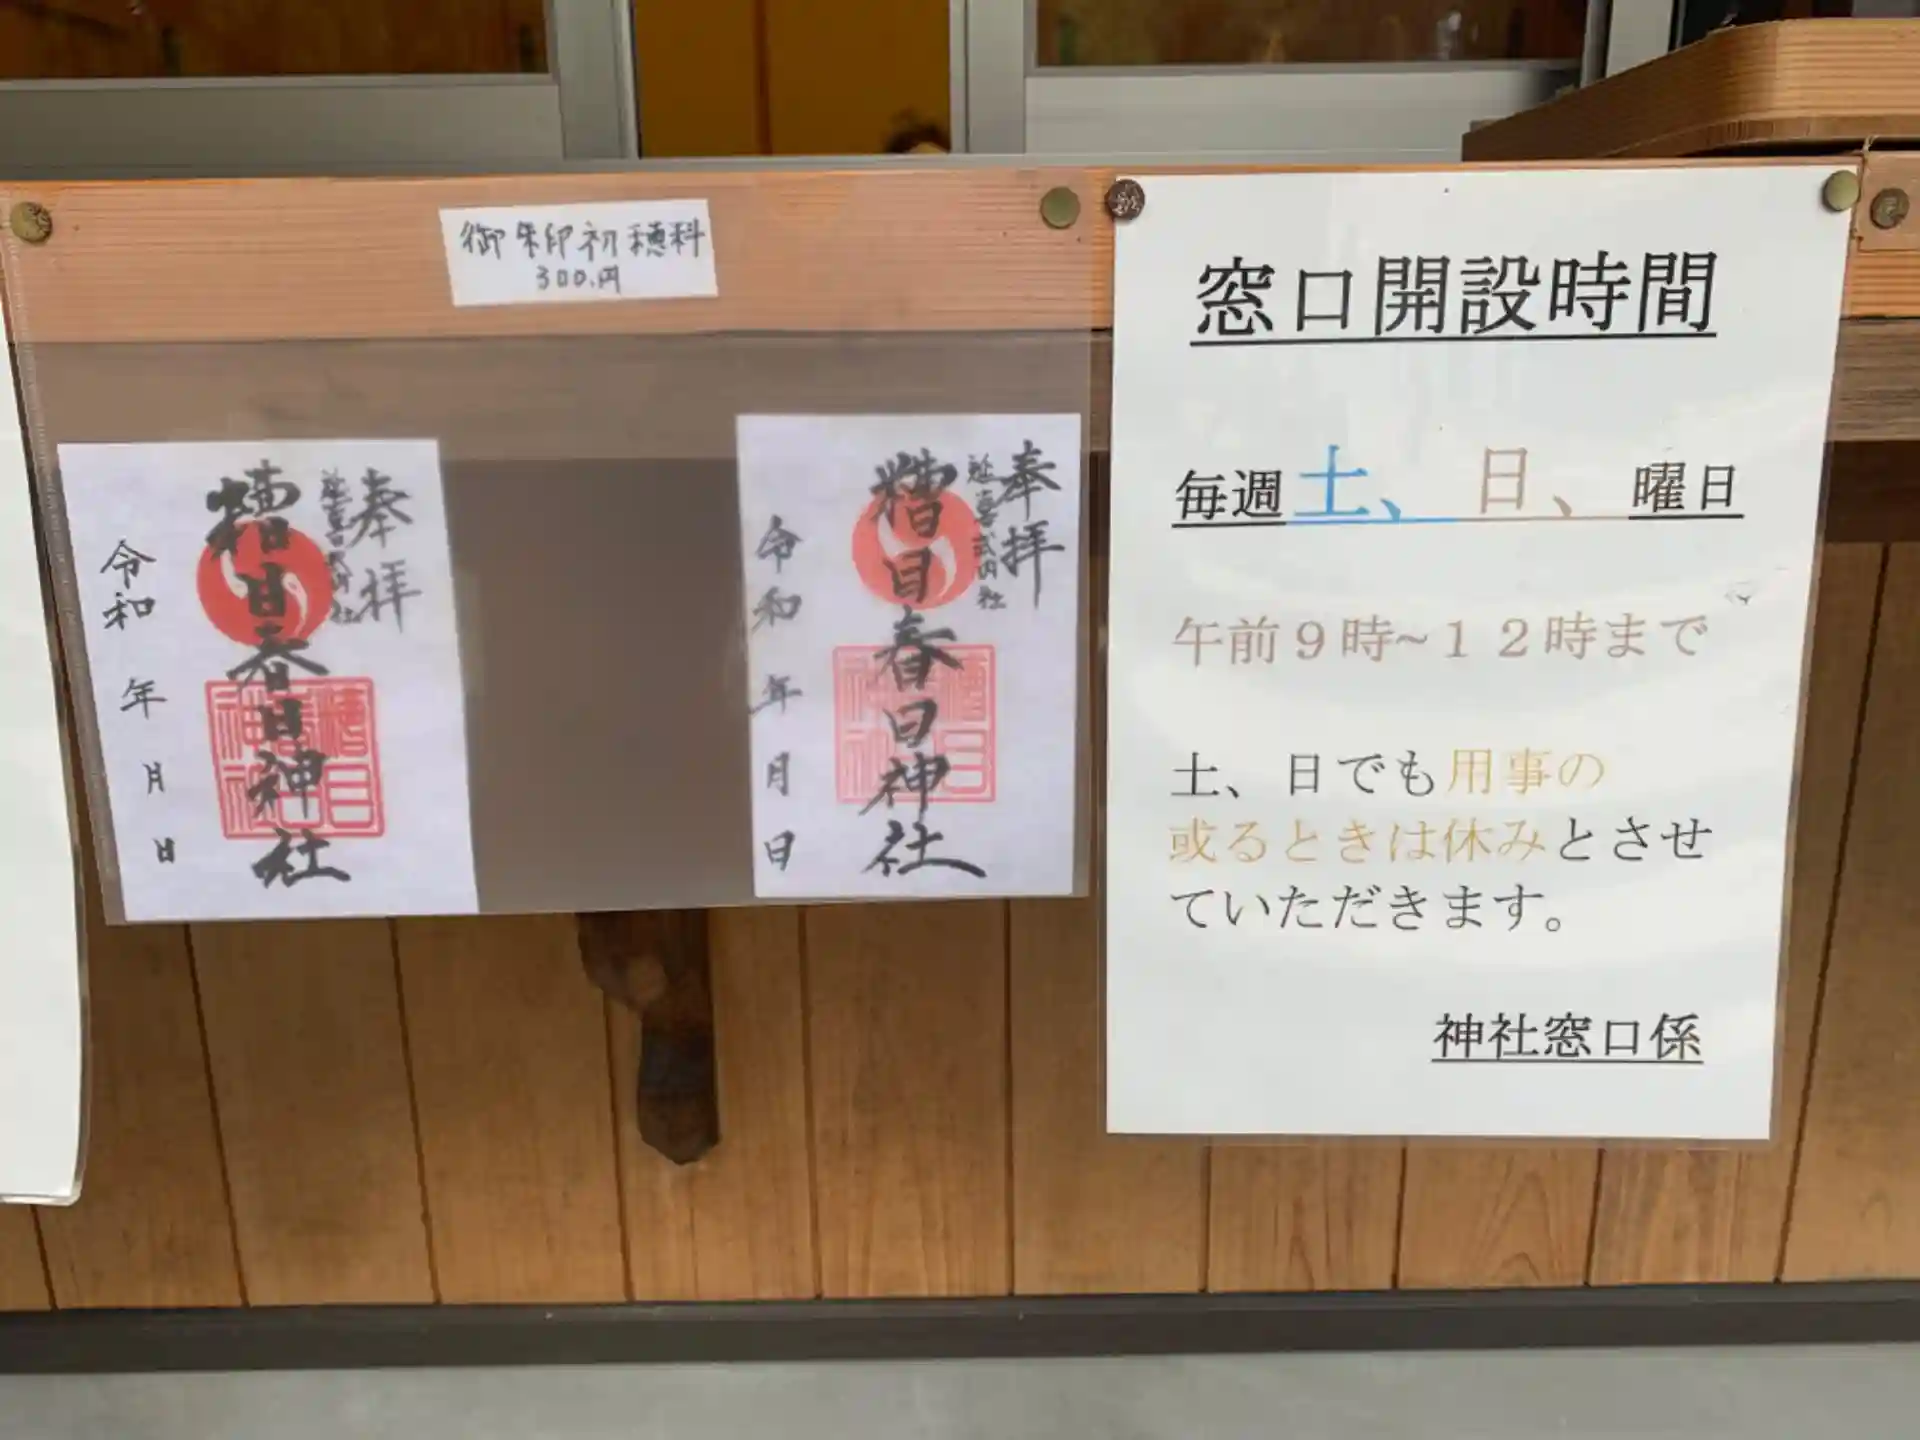 御朱印初穂料
300.円
奉拝
延喜式内社
糟目春日神社
令和 年 月 日
奉拝
延喜式内社
糟目春日神社
令和 年 月 日
窓口開設時間
毎週土、日、曜日
午前9時~12時まで
土、日でも用事の
或るときは休みとさせ
ていただきます。
神社窓口係